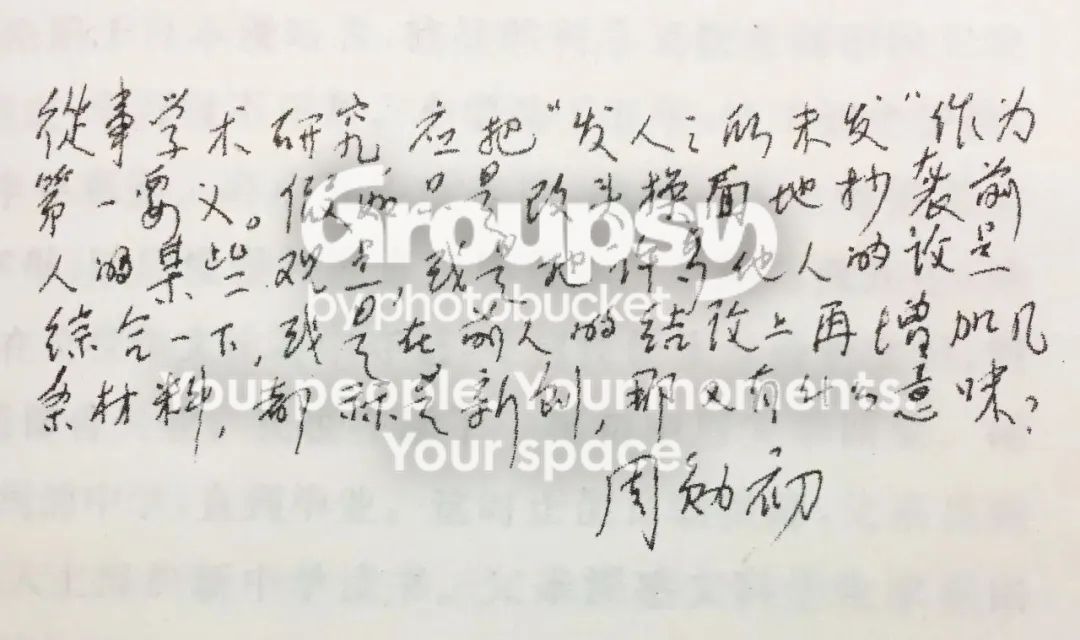 從事学术研究应把“发人之所未发”作为
第一要义。假如只是改头换面地抄袭前
人的某些观点,或是把许多他人的说点
综合一下,或是在前人的结改上再增加几
条材料,都称是新创,那又有什么意味?
周勋初
Groupsy
by photobucket
Your people. Your moments.
Your space.